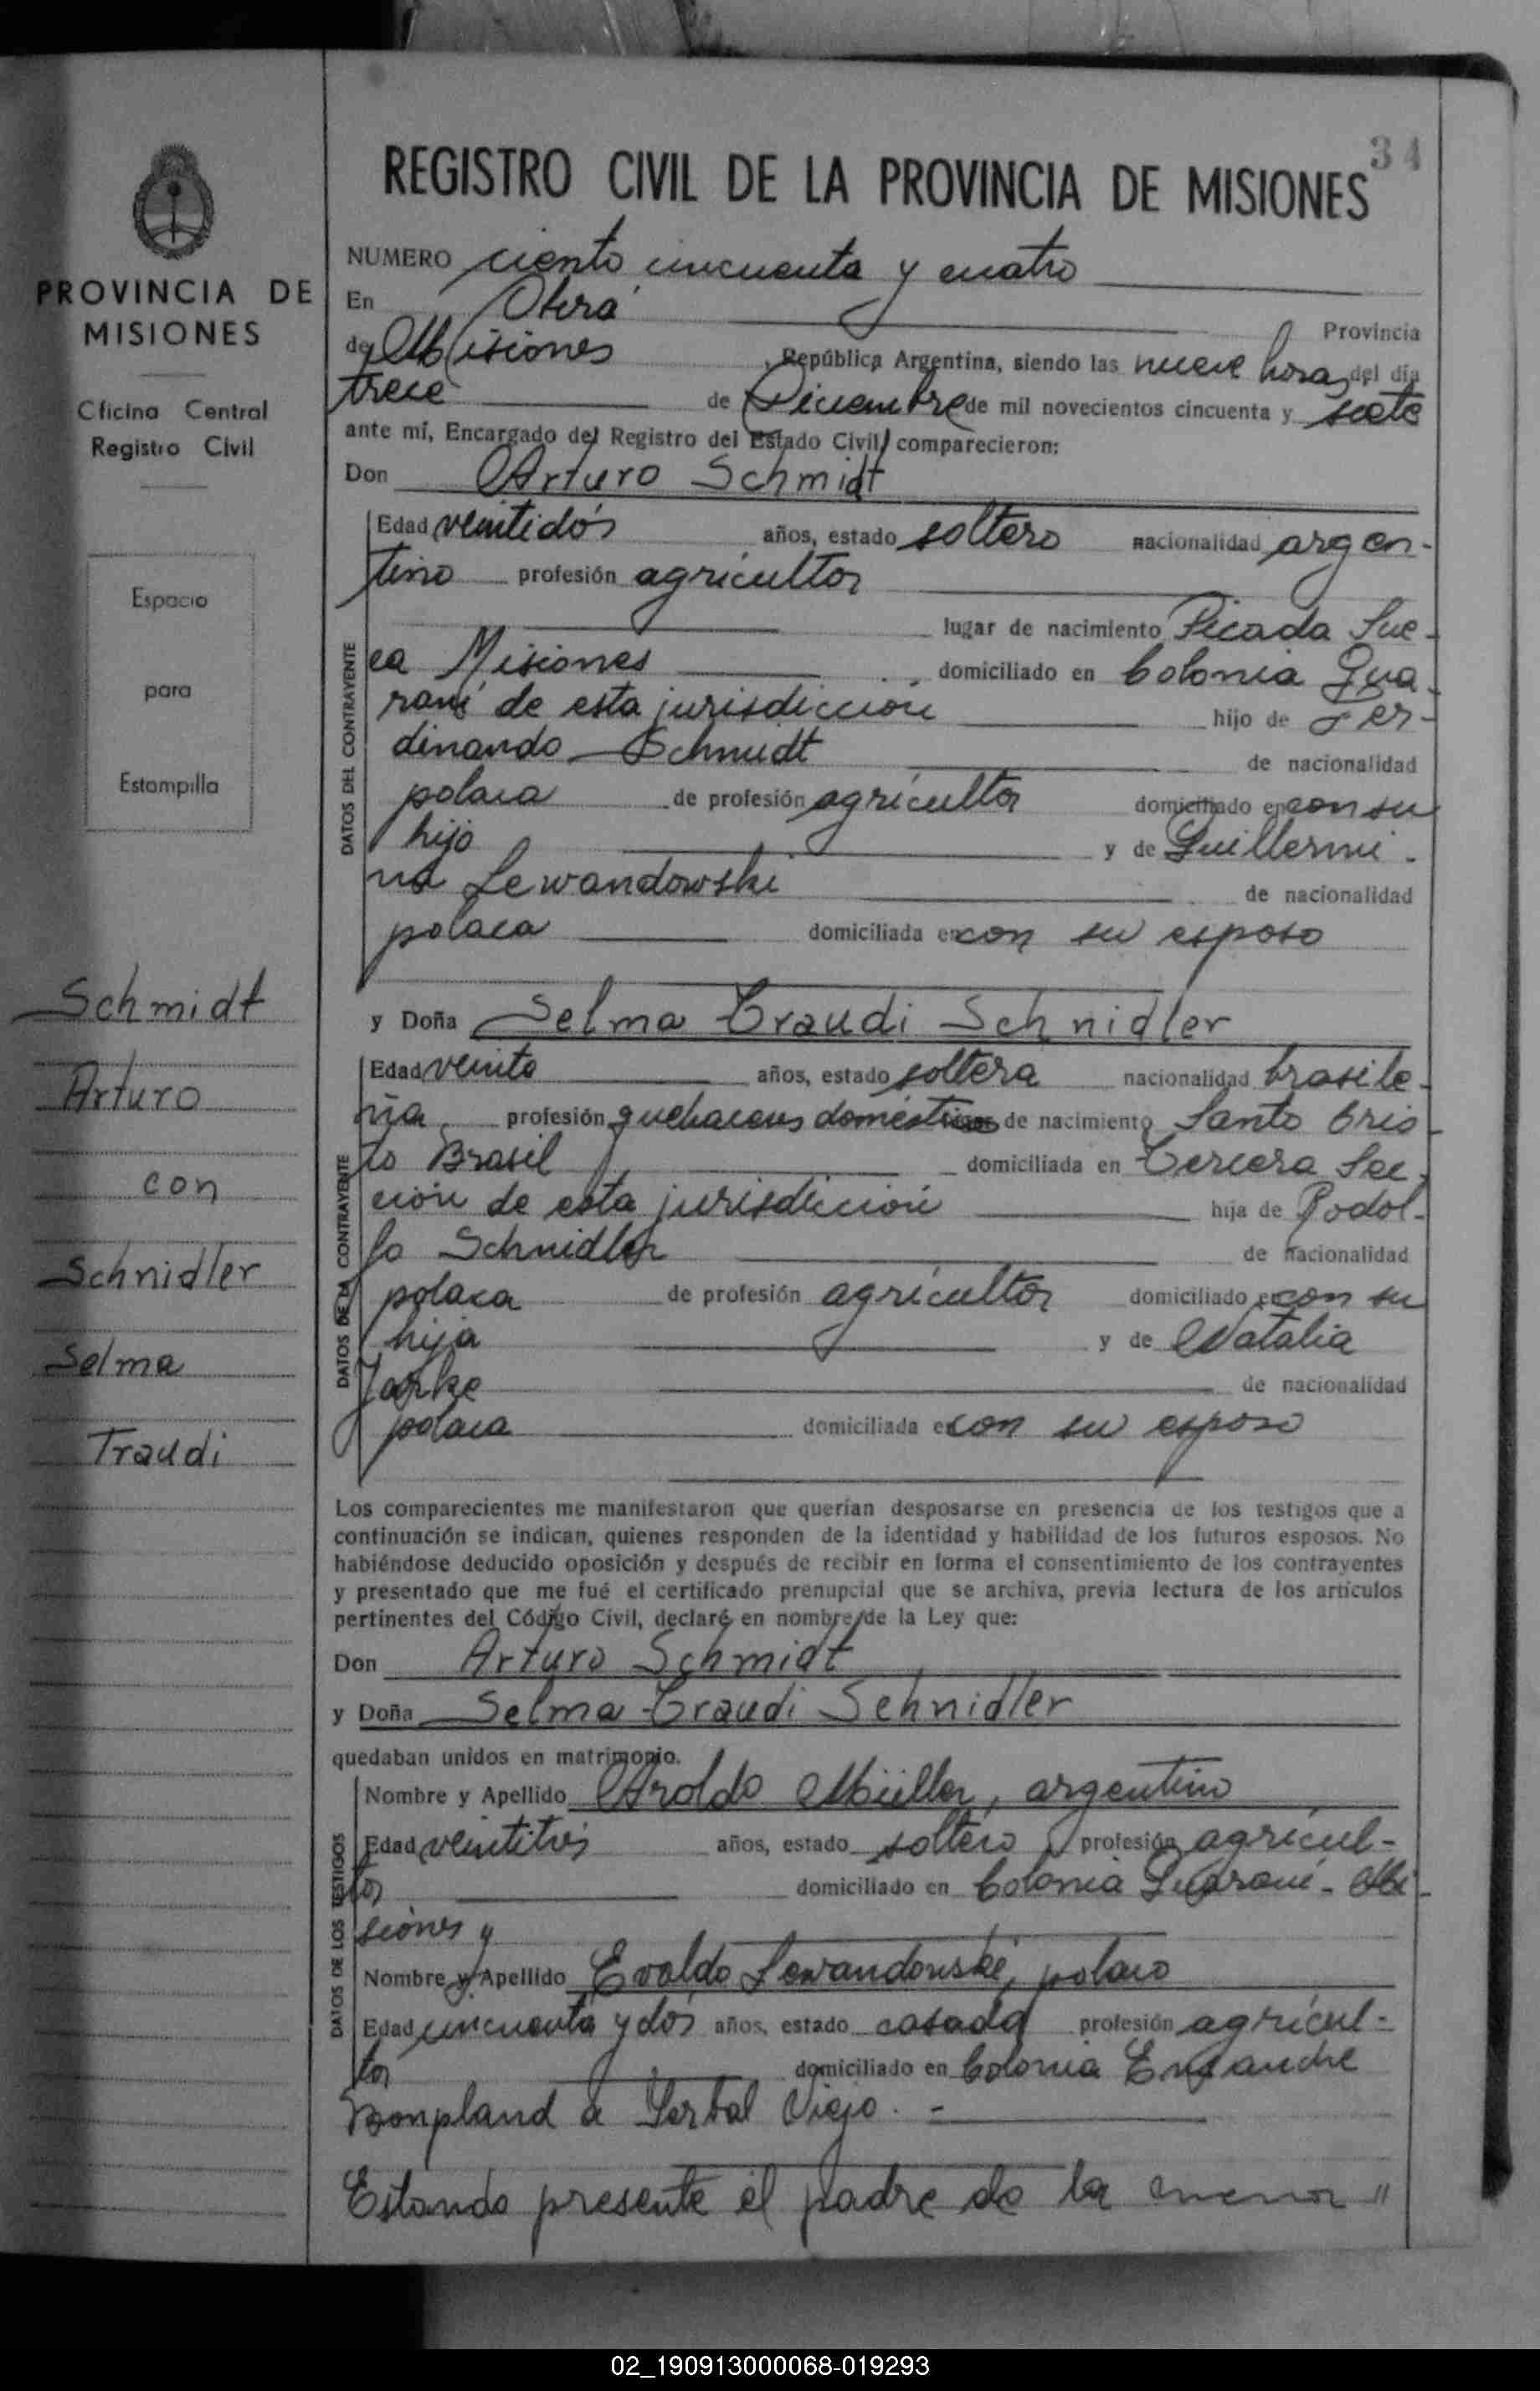 34
REGISTRO CIVIL DE LA PROVINCIA DE MISIONES
PROVINCIA DE
MISIONES
Oficina Central
Registro Civil
Espacio
para
Estampilla
Schmidt
Arturo
con
Schnidler
Selma
Traudi
NUMERO ciento cincuenta y cuatro
En Oberá Provincia
de Misiones, República Argentina, siendo las nueve horas del día
trece de Diciembre de mil novecientos cincuenta y siete
ante mí, Encargado del Registro del Estado Civil comparecieron:
Don Arturo Schmidt
DATOS DEL CONTRAYENTE
Edad veintidós años, estado soltero nacionalidad argen-
tino profesión agricultor
lugar de nacimiento Picada Sue-
ca Misiones domiciliado en Colonia Gua-
raní de esta jurisdicción hijo de Fer-
dinando Schmidt de nacionalidad
polaca de profesión agricultor domiciliado en con su
hijo y de Guillermi-
na Lewandowski de nacionalidad
polaca domiciliada en con su esposo
y Doña Selma Traudi Schnidler
DATOS DE LA CONTRAYENTE
Edad veinte años, estado soltera nacionalidad brasile-
ña profesión quehaceres domésticos de nacimiento Santo Cris-
to Brasil domiciliada en Tercera Sec-
ción de esta jurisdicción hija de Rodol-
fo Schnidler de nacionalidad
polaca de profesión agricultor domiciliado en con su
hija y de Natalia
Jarke de nacionalidad
polaca domiciliada en con su esposo
Los comparecientes me manifestaron que querían desposarse en presencia de los testigos que a
continuación se indican, quienes responden de la identidad y habilidad de los futuros esposos. No
habiéndose deducido oposición y después de recibir en forma el consentimiento de los contrayentes
y presentado que me fué el certificado prenupcial que se archiva, previa lectura de los artículos
pertinentes del Código Civil, declaré en nombre de la Ley que:
Don Arturo Schmidt
y Doña Selma Traudi Schnidler
quedaban unidos en matrimonio.
DATOS DE LOS TESTIGOS
Nombre y Apellido Aroldo Müller, argentino
Edad veintitrés años, estado soltero profesión agricul-
tor domiciliado en Colonia Guaraní - Mi-
siones y
Nombre y Apellido Evaldo Lewandowski, polaco
Edad cincuenta y dos años, estado casado profesión agricul-
tor domiciliado en Colonia Ensanche
Bonpland a Yerbal Viejo. -
Estando presente el padre de la menor "
02_190913000068-019293